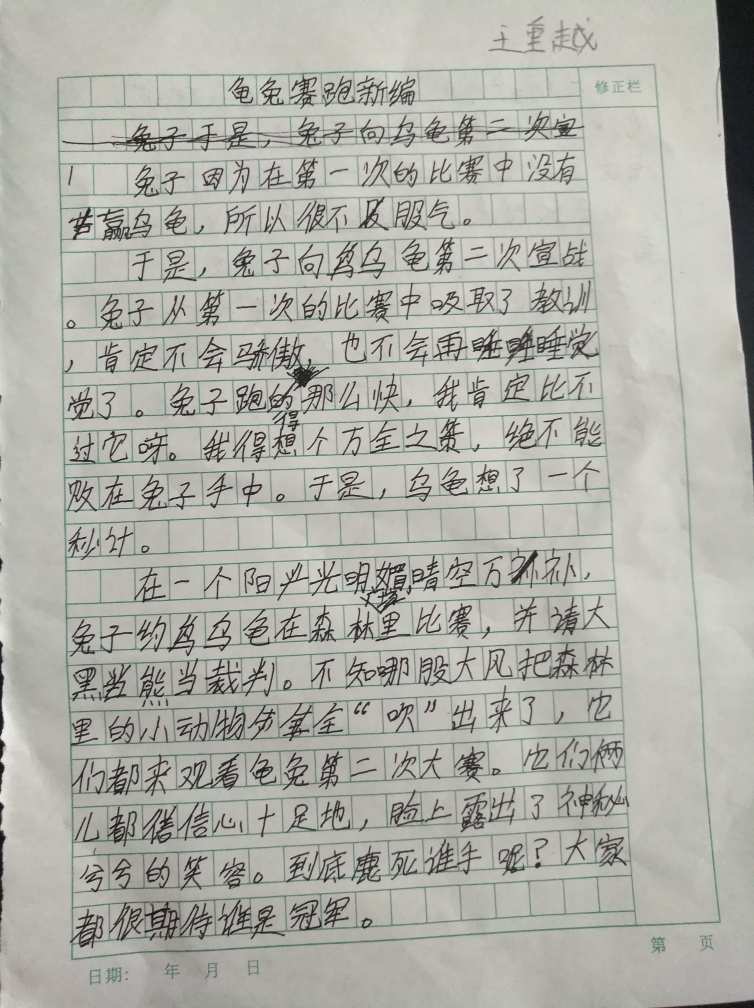 王重越
龟兔赛跑新编
修正栏
兔子于是，兔子向乌龟第二次宣
兔子因为在第一次的比赛中没有
赢乌龟，所以很不服气。
于是，兔子向乌龟第二次宣战
。兔子从第一次的比赛中吸取了教训
，肯定不会骄傲，也不会再睡觉
觉了。兔子跑得那么快，我肯定比不
过它呀。我得想个万全之策，绝不能
败在兔子手中。于是，乌龟想了一个
秒计。
在一个阳光明媚，晴空万补，
兔子约乌龟在森林里比赛，并请大
黑熊当裁判。不知哪股大风把森林
里的小动物全“吹”出来了，它
们都来观看龟兔第二次大赛。它们俩
儿都信心十足地，脸上露出了神秘
兮兮的笑容。到底鹿死谁手呢？大家
都很期待谁是冠军。
第 页
日期： 年 月 日